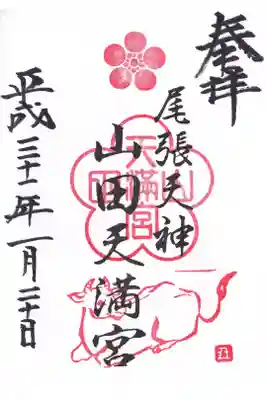 奉拝
尾張天神
山田天満宮
平成三十一年一月二十日
天満宮
山田